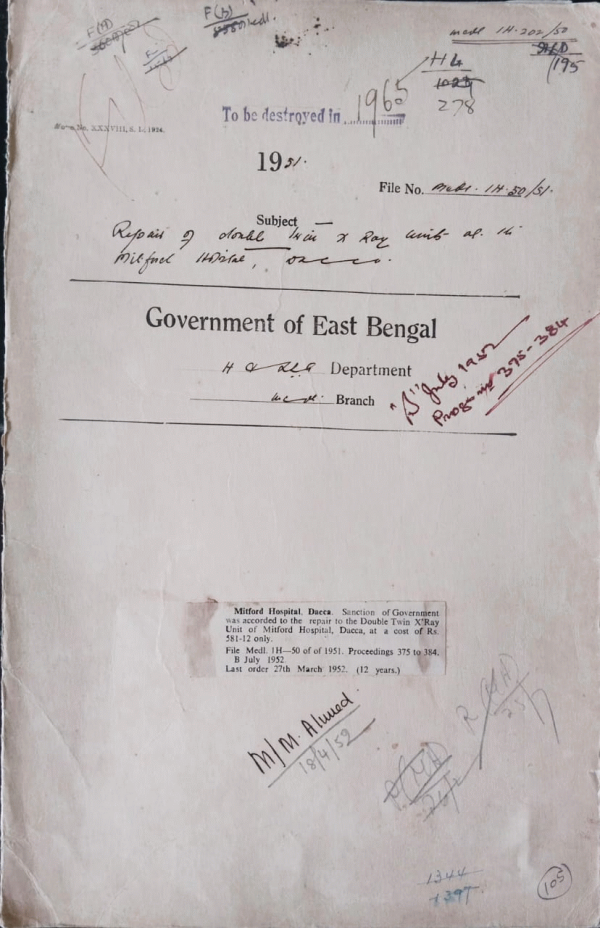 F(A)
F(b)
medl 1H-202/50
195
H4
278
To be destroyed in 1965
Form No. XXXVIII, S. I.; 1934.
1951.
File No. Medl. 1H-50/51.
Subject —
Repair of double twin X Ray unit at the
Mitford Hospital, Dacca.
Government of East Bengal
Department
Medl. Branch
"B" July 1952
Progs. 375-384
Mitford Hospital, Dacca. Sanction of Government
was accorded to the repair to the Double Twin X'Ray
Unit of Mitford Hospital, Dacca, at a cost of Rs.
581-12 only.
File Medl. 1H—50 of of 1951. Proceedings 375 to 384.
B July 1952.
Last order 27th March 1952. (12 years.)
M/M. Ahmed
18/4/52
1344
1397
105